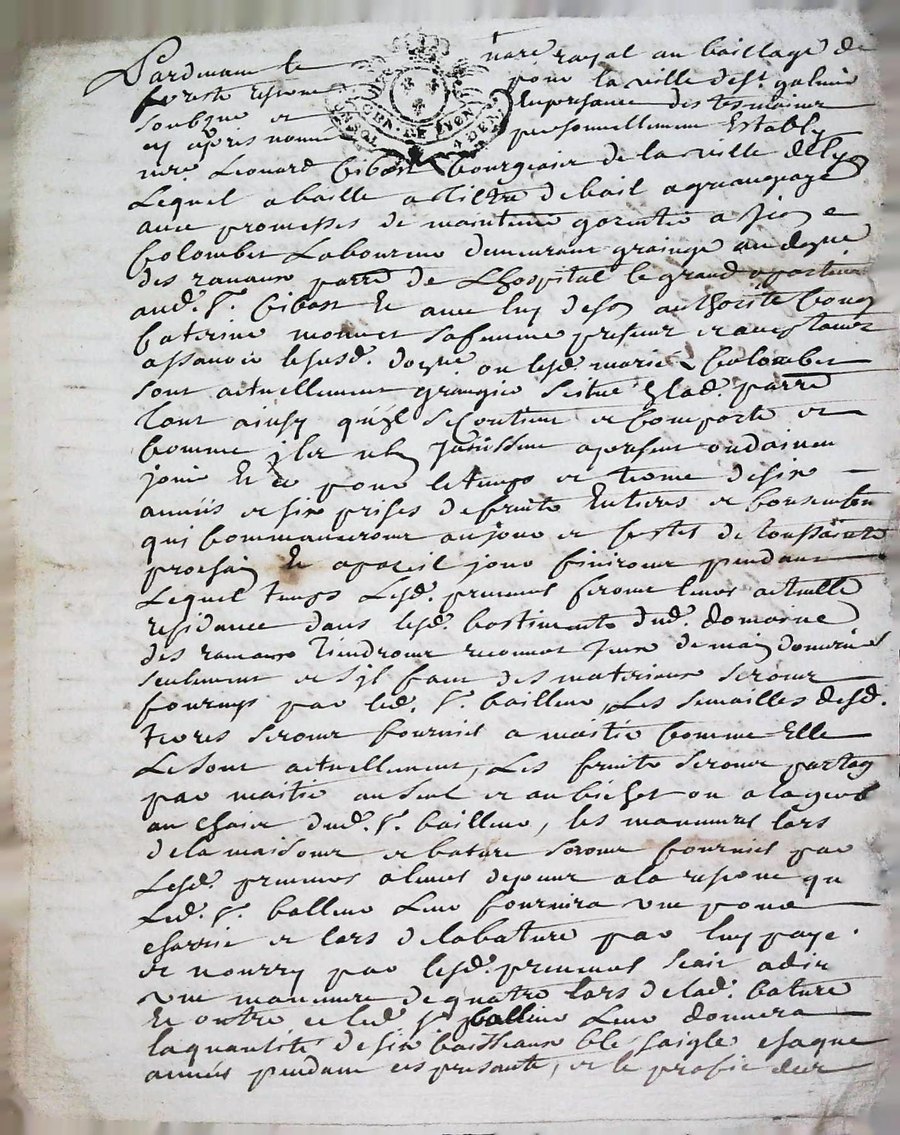 Pardevant le notre royal au baillage de
foreste resseant pour la ville de st galmier
soubzne et En presence des tesmoins
cy apres nomé personnellement Estably
GEN. DE LYON
4 DEN
mre. Leonard bourgeois de la ville de
Lequel a baillé a tiltre de bail a grangeage
avec promesses de maintenir garentir a
Colombet Laboureur demeurant granger au doyne
des ravaux parre de Lhospital le grand apartenant
aud. Sr. Et avec luy de son authorité
Caterine monnet sa femme presente et acceptante
assavoir le susd. doyne ou lesd. mariés Colombet
sont actuellement grangier scitué lad. parre
Tout ainsy qu'il se Contient et Comporte et
Comme jouissent a present ou doivent
jouir Et ce pour le temps et terme de six
années et six prises de fruits Entieres et
qui Commanceront au jour et festes de toussaints
prochain Et a pareil jour finiront pendant
Lequel temps Lesd. preneurs feront leur actuelle
residance dans lesd. bastiments dud. domaine
des ravaux Tiendront de main
seulement et s'il faut des materiaux seront
fournys par led. Sr. bailleur, Les semailles desd.
terres seront fournies a moitié Comme Elle
Le sont actuellement, Les fruits seront partagé
par moitié au seul et au bichet ou a la gerbe
au choix dud. Sr. bailleur, les manœuvres lors
de la maisons et bature seront fournies par
Lesd. preneurs a leurs depens a la reserve que
Led. Sr. balleur Leur fournira une pour
et lors de la bature par luy payé
et nourry par lesd. preneurs scair a dire
une manœuvre de quatre lors de lad. bature
Et outre ce led. Sr balleur Leur donnera
la quantité de six baisseaux blé saigle chaque
années pendant ces presante, et le profit des